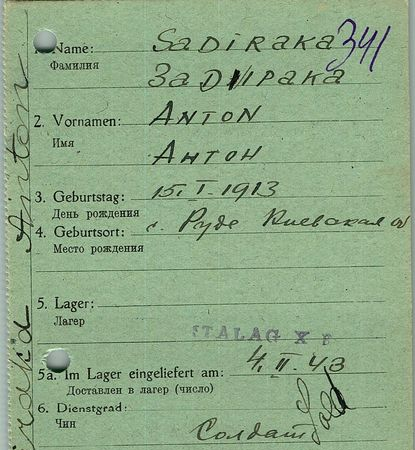 1. Name: SADIRAKA 341
Фамилия ЗАДИРАКА
2. Vornamen: ANTON
Имя АНТОН
3. Geburtstag: 15. I. 1913
День рождения
4. Geburtsort: с. Руде Киевская
Место рождения
5. Lager:
Лагер
STALAG X
5a. Im Lager eingeliefert am: 4. II. 43
Доставлен в лагер (число)
6. Dienstgrad: Sold
Чин Солдат
Anton